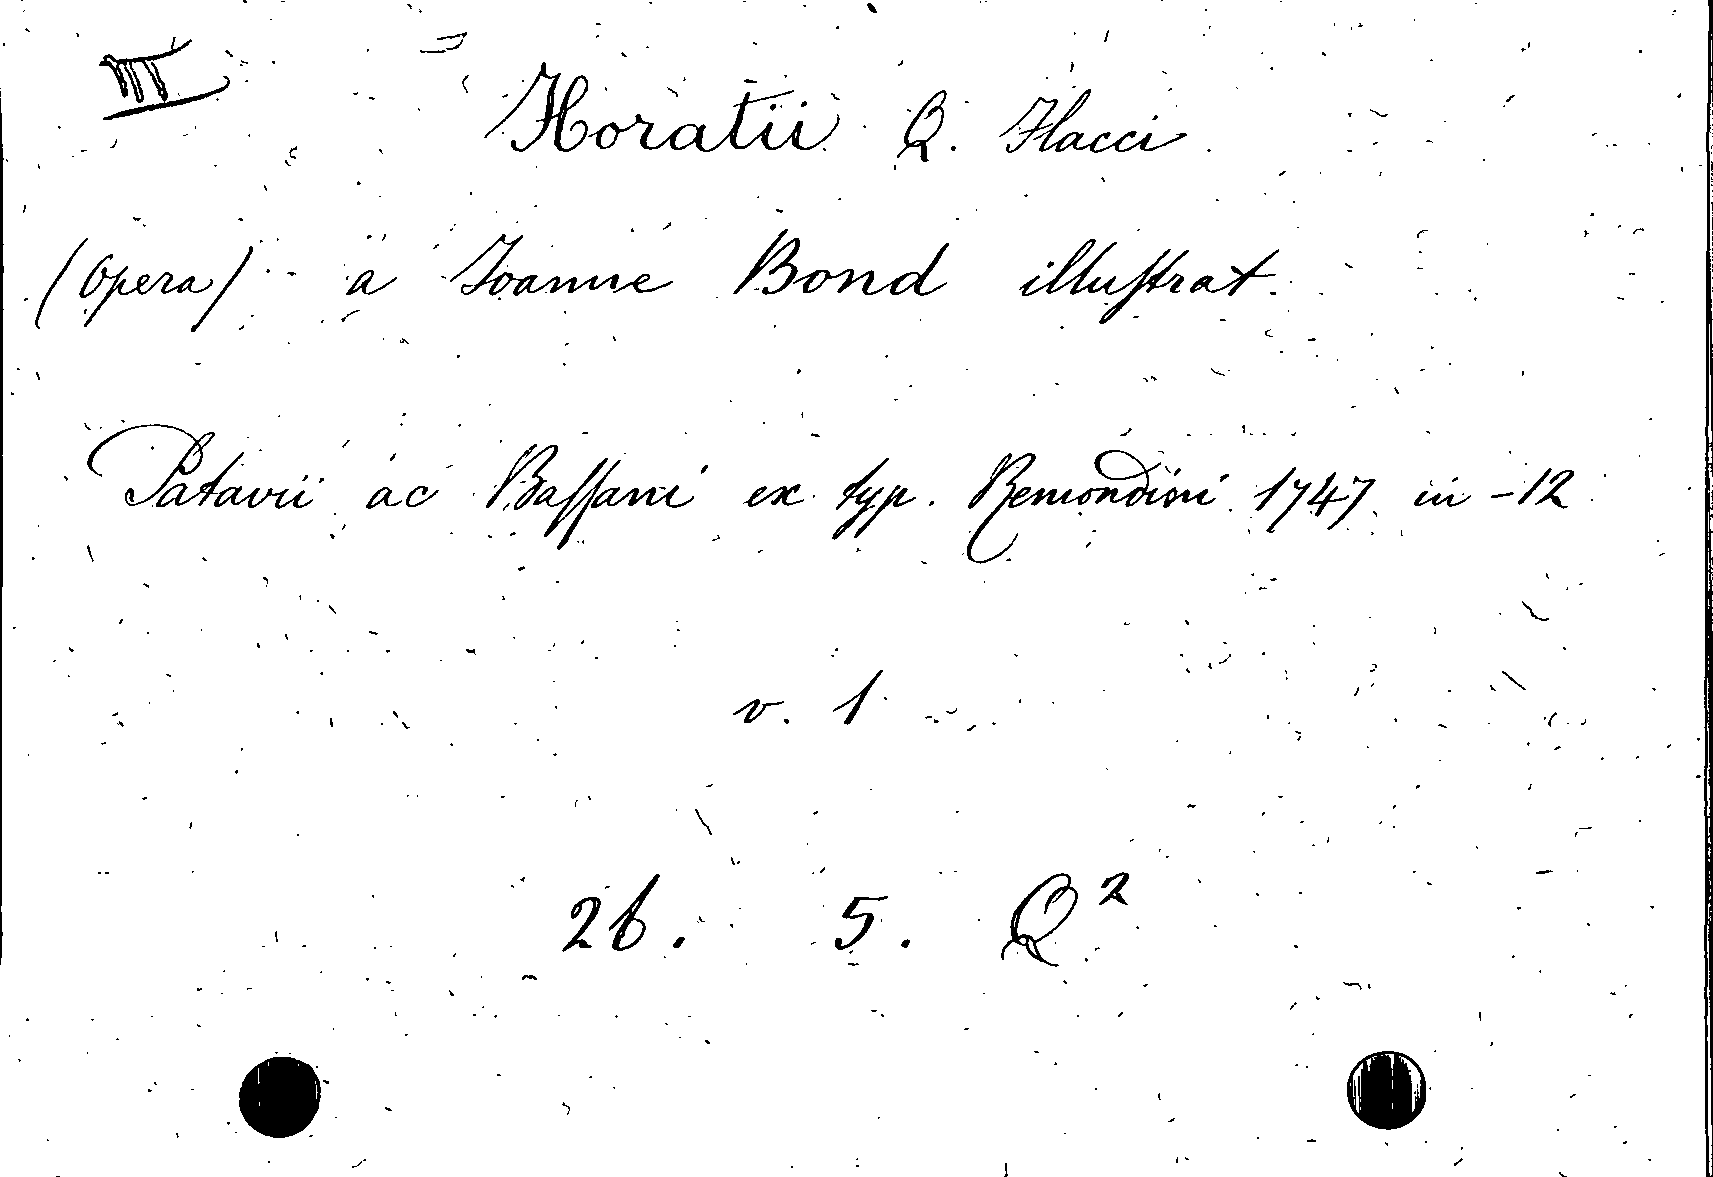 III
Horatii Q. Flacci
(Opera) a Ioanne Bond illustrat.
Patavii ac Bassani ex typ. Remondini 1747 in-12
v. 1
26. 5. Q²